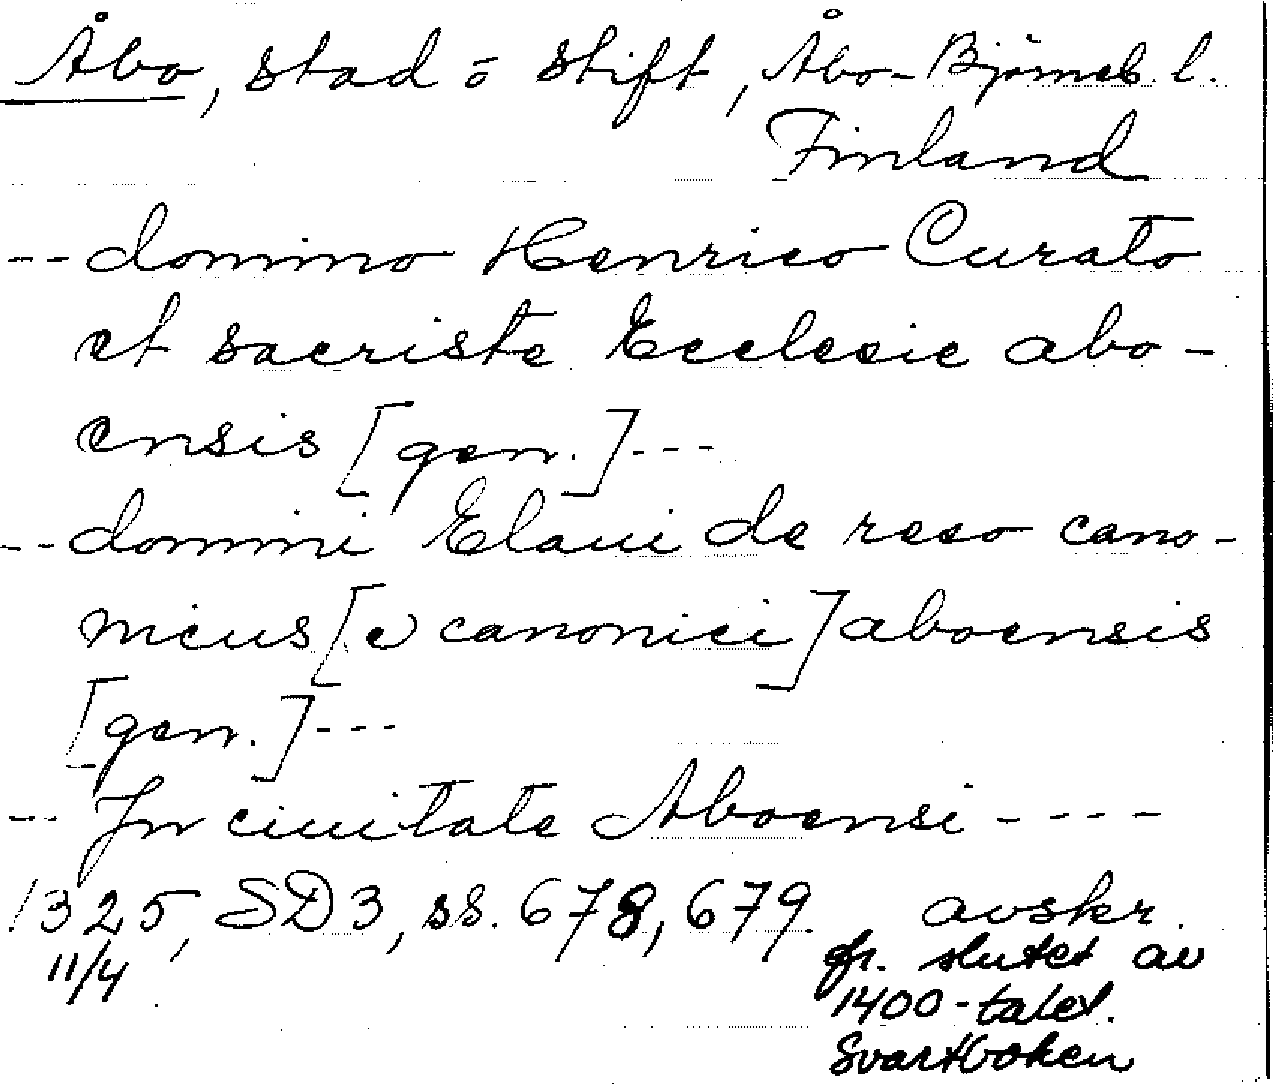 Åbo, stad o stift, Åbo-Björneb. l.
Finland
-- domino Henrico Curato
et sacriste Ecclesie abo-
ensis [gen.] ---
-- domini Elaui de reso cano-
nicus [ɔ canonici] aboensis
[gen.] ---
-- Jn ciuitate Aboensi ----
1325, SD3, ss. 678, 679. avskr.
11/4 fr. slutet av
1400-talet.
Svartboken